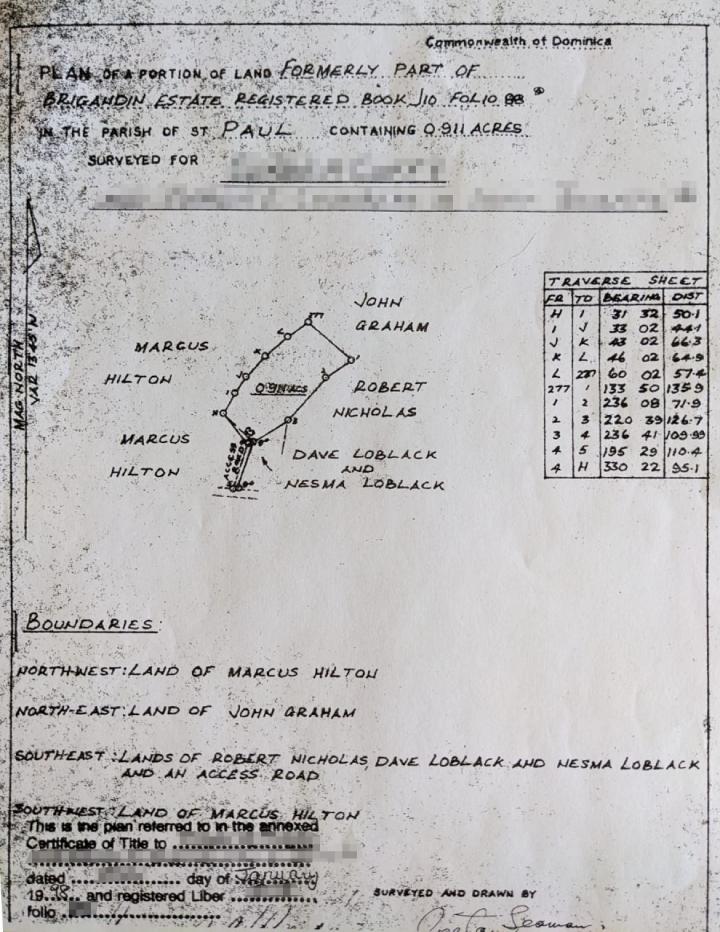 Commonwealth of Dominica
PLAN OF A PORTION OF LAND FORMERLY PART OF
BRIGANDIN ESTATE REGISTERED BOOK J10 FOLIO
IN THE PARISH OF ST PAUL CONTAINING 0.911 ACRES
SURVEYED FOR
MAG. NORTH
JOHN
GRAHAM
MARCUS
HILTON
0.911 ACS
ROBERT
NICHOLAS
MARCUS
HILTON
ACCESS
ROAD
DAVE LOBLACK
AND
NESMA LOBLACK
TRAVERSE SHEET
FR TO BEARING DIST
H I 31 32 50.1
I J 33 02 44.1
J K 43 02 66.3
K L 46 02 64.9
L 277 60 02 57.4
277 1 133 50 135.9
1 2 236 08 71.9
2 3 220 39 126.7
3 4 236 41 109.99
4 5 195 29 110.4
4 H 330 22 95.1
BOUNDARIES:
NORTH-WEST: LAND OF MARCUS HILTON
NORTH-EAST: LAND OF JOHN GRAHAM
SOUTH-EAST: LANDS OF ROBERT NICHOLAS, DAVE LOBLACK AND NESMA LOBLACK
AND AN ACCESS ROAD
SOUTH-WEST: LAND OF MARCUS HILTON
This is the plan referred to in the annexed
Certificate of Title to
dated day of January
1998 and registered Liber
folio
SURVEYED AND DRAWN BY